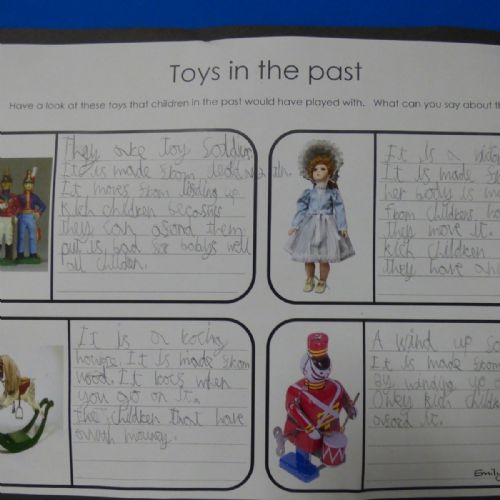 Toys in the past
Have a look at these toys that children in the past would have played with. What can you say about th
They are toy soldiers
It is made from lead
It moves from
Rich children
they can aford them
but is bad for babys well
all children.
It is a vict
It is made f
her body is m
from childrens h
they move it.
Rich children
they have an
It is a
It is made from
wood. It when
you go on it.
The children that have
money.
A wind up so
It is made from
By winding up
Only rich children
aford it.
Emily